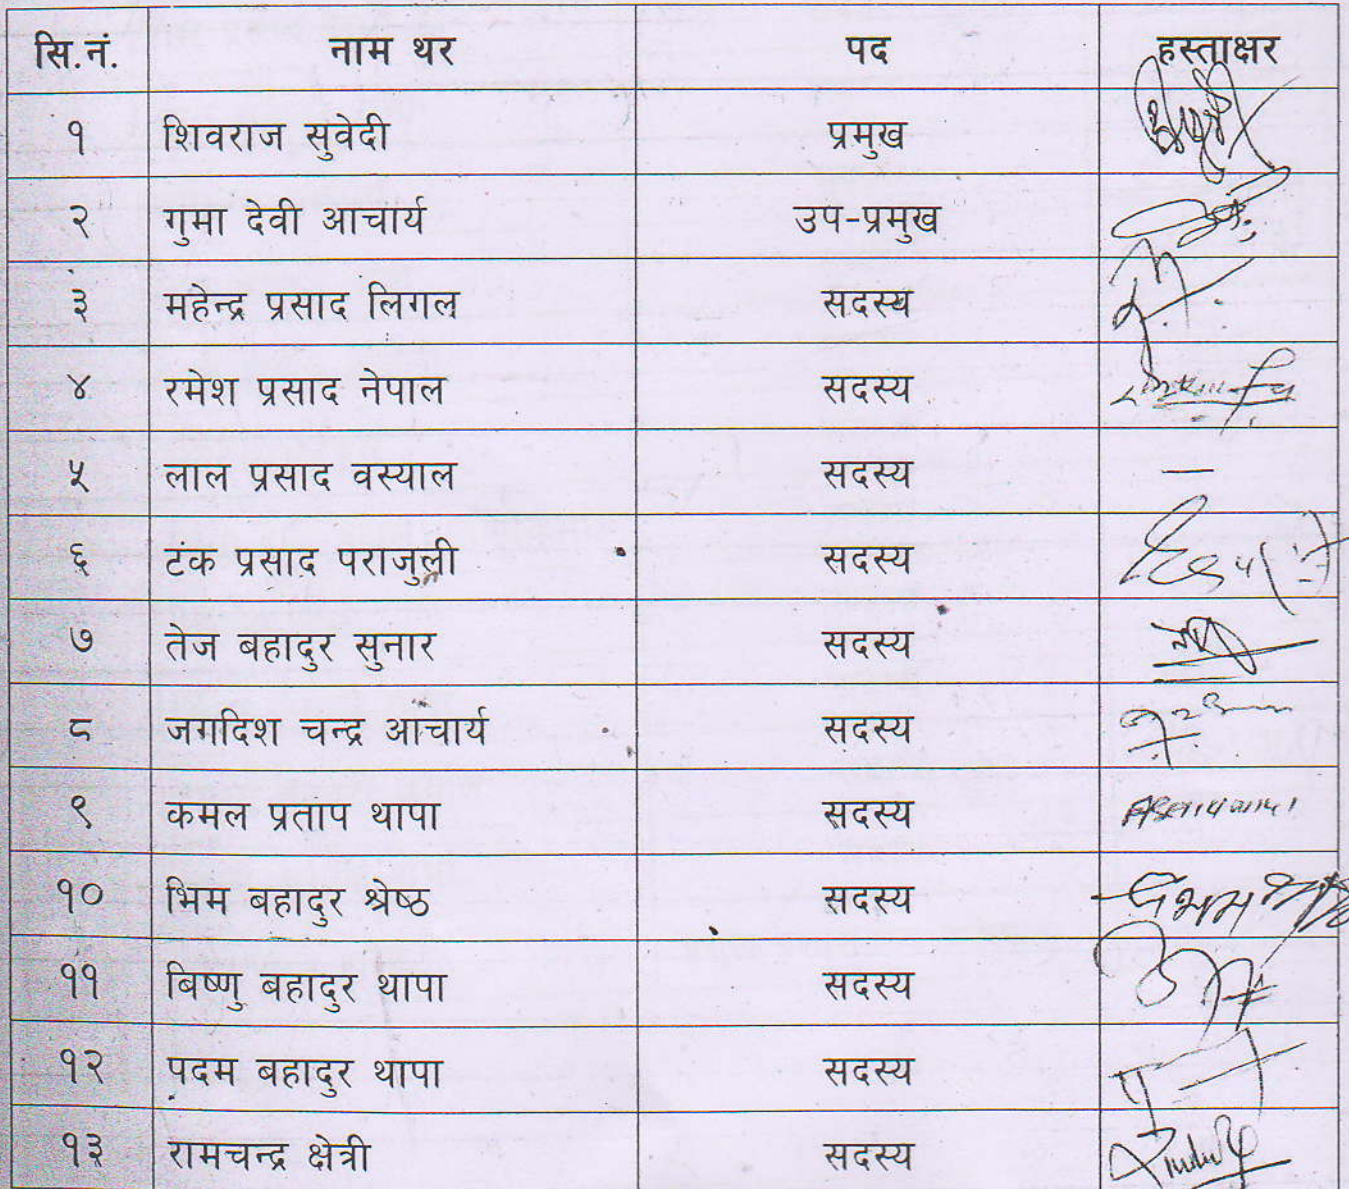 सि.नं. नाम थर पद हस्ताक्षर
१ शिवराज सुवेदी प्रमुख
२ गुमा देवी आचार्य उप-प्रमुख
३ महेन्द्र प्रसाद लिगल सदस्य
४ रमेश प्रसाद नेपाल सदस्य
५ लाल प्रसाद वस्याल सदस्य —
६ टंक प्रसाद पराजुली सदस्य
७ तेज बहादुर सुनार सदस्य
८ जगदिश चन्द्र आचार्य सदस्य
९ कमल प्रताप थापा सदस्य
१० भिम बहादुर श्रेष्ठ सदस्य
११ बिष्णु बहादुर थापा सदस्य
१२ पदम बहादुर थापा सदस्य
१३ रामचन्द्र क्षेत्री सदस्य